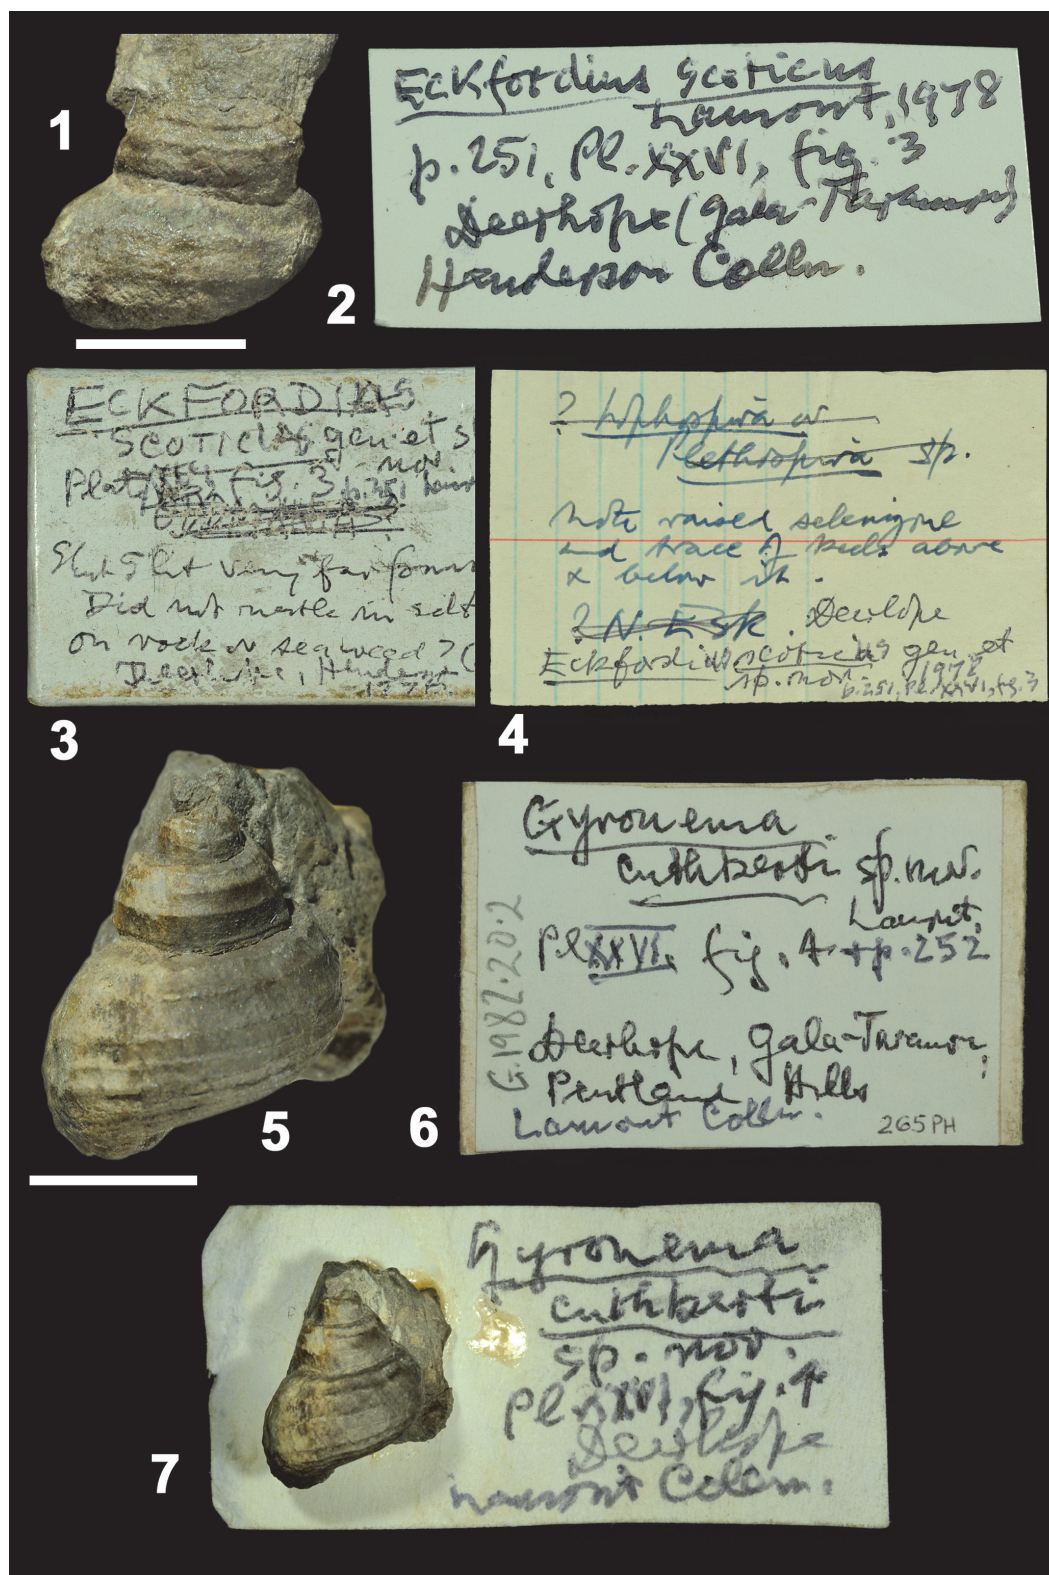 1
Eckfordius scoticus
Lamont, 1978
p. 251, Pl. XXVI, fig. 3
Deerhope (Gala-Tarannon)
Henderson Colln.
2
ECKFORDIUS
SCOTICUS gen et s
nov.
Plate fig. 3 p. 251
Slit very far
Did not nestle in silt
on rock or seaweed? (
Deerhope,
3
? Lophospira or
Plethospira sp.
Note raised selenizone
and trace of keels above
& below it.
? N. Esk. Deerhope
Eckfordius scoticus gen. et
sp. nov. 1978
p. 251, Pl. XXVI, fig. 3
4
5
Gyronema
cuthberti sp. nov.
Lamont,
Pl XXVI, fig. 4 + p. 252
G.1982.20.2
Deerhope, Gala-Tarannon,
Pentland Hills
Lamont Colln.
265PH
6
Gyronema
cuthberti
sp. nov.
Pl. XXVI, fig. 4
Deerhope
Lamont Colln.
7